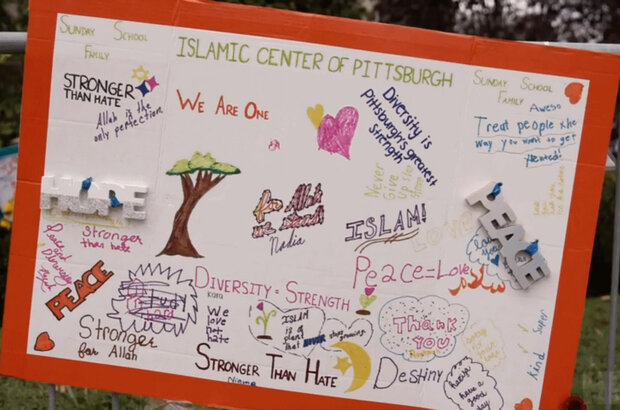 SUNDAY SCHOOL
FAMILY
ISLAMIC CENTER OF PITTSBURGH
SUNDAY SCHOOL
FAMILY
STRONGER
THAN HATE
Allah is the
only perfection
WE ARE ONE
Diversity is
Pittsburgh's greatest
Strength
Awesome
Treat people the
way you want to get
treated!
Never
Give
Up
HOPE
Stronger
than hate
for Allah
we stand
Nadia
ISLAM!
LOVE
PEACE
PEACE
Peace=Love
DIVERSITY = STRENGTH
Kara
We
love
not
hate
ISLAM
is a
plant
that NEVER stops
growing
THANK
YOU
Super
Kind
Stronger
for Allah
STRONGER THAN HATE
Destiny
have a
good
day